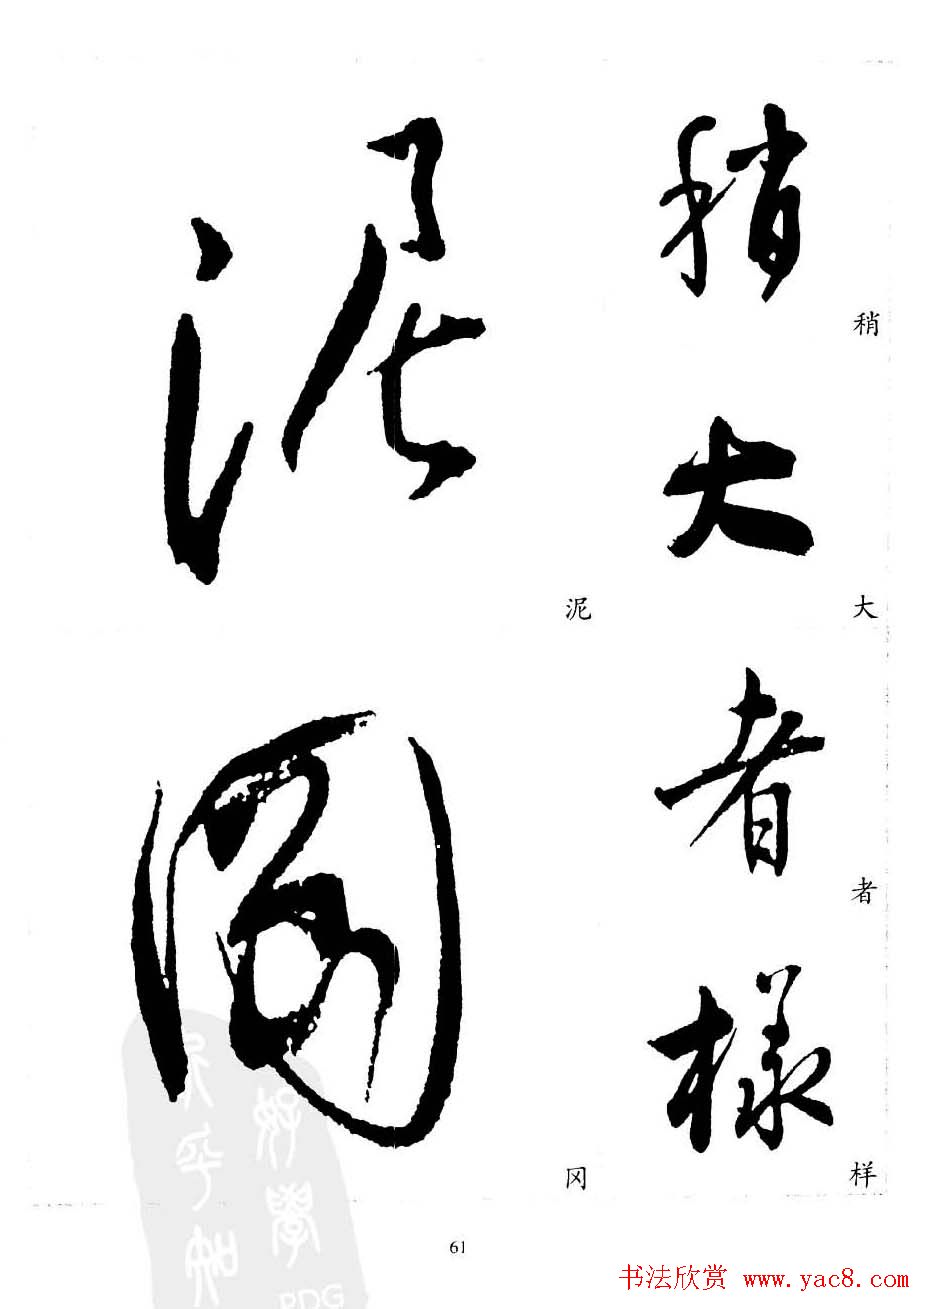 稍
稍
大
大
者
者
樣
样
泥
泥
冈
61
书法欣赏 www.yac8.com
PDG